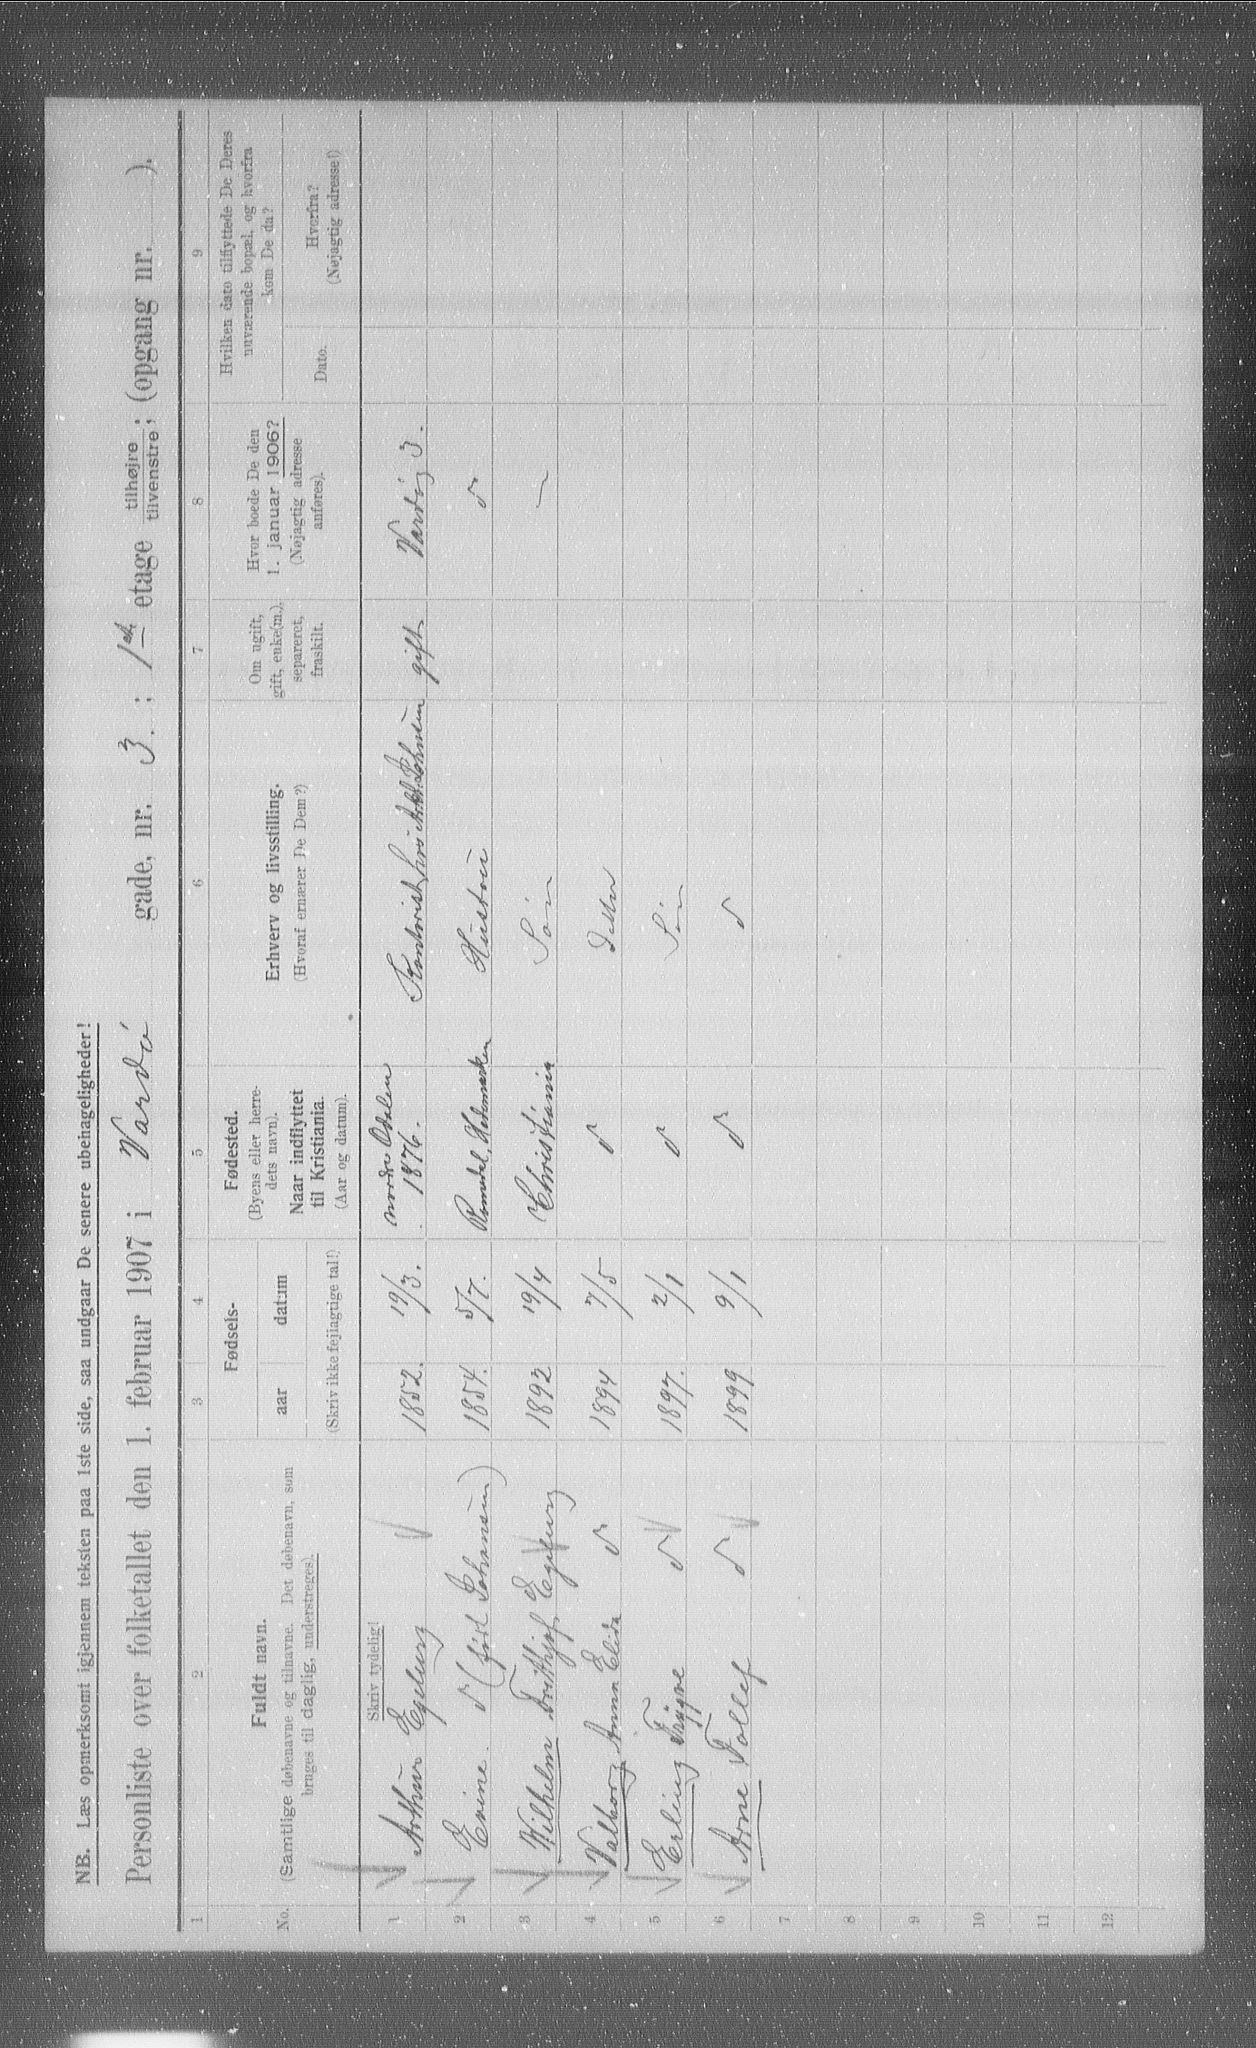 NB. Læs opmerksomt igjennem teksten paa 1ste side, saa undgaar De senere ubehageligheder!
Personliste over folketallet den 1. februar 1907 i Vardø gade, nr. 3. ; 1ste etage tilhøjre tilvenstre; (opgang nr. ).
1 2 3 4 5 6 7 8 9
No.
Fuldt navn.
(Samtlige døbenavne og tilnavne. Det døbenavn, som
bruges til daglig, understreges).
Skriv tydelig!
Fødsels-
aar datum
(Skriv ikke fejlagtige tal!)
Fødested.
(Byens eller herre-
dets navn).
Naar indflyttet
til Kristiania.
(Aar og datum).
Erhverv og livsstilling.
(Hvoraf ernærer De Dem?)
Om ugift,
gift, enke(m.),
separeret,
fraskilt.
Hvor boede De den
1. januar 1906?
(Nøjagtig adresse
anføres).
Hvilken dato tilflyttede De Deres
nuværende bopæl, og hvorfra
kom De da?
Dato.
Hvorfra?
(Nøjagtig adresse!)
1 Arthur Egeberg 1852. 19/3. nordre Odalen 1876. Kontorist gift Vardøg 3.
2 Evine (født Johansen) 1854. 5/7. Romedal, Hedemarken Hustru
3 Wilhelm Fridthjof Egeberg 1892 19/4 Christiania Søn
4 Valborg Anna Elida 1894 7/5 Datter
5 Erling Trygve 1897. 2/1 Søn
6 Arne Tollef 1899 9/1
7
8
9
10
11
12